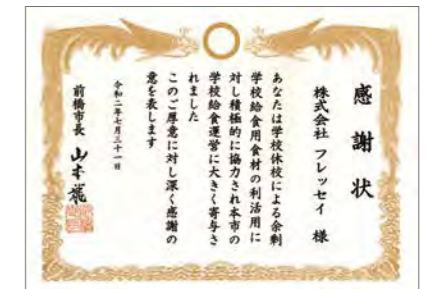 感謝状
株式会社 フレッセイ 様
あなたは学校休校による余剰
学校給食用食材の利活用に
対し積極的に協力され本市の
学校給食運営に大きく寄与さ
れました
このご厚意に対し深く感謝の
意を表します
令和二年七月三十一日
前橋市長 山本龍